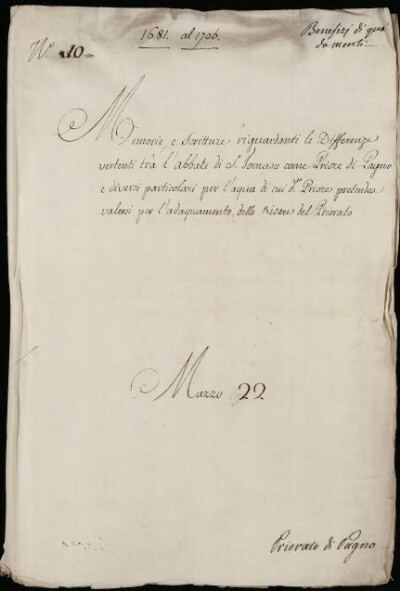 1681. al 1706.
Benefizj di quà
da monti
N.º 10
Memorie, e Scritture riguardanti le Differenze
vertenti trà l'abbate di S. Tomaso come Priore di Pagno
e diversi particolari per l'aqua di cui d.º Priore pretendea
valersi per l'adaquamento delle del Priorato
Mazzo 22
Priorato di Pagno